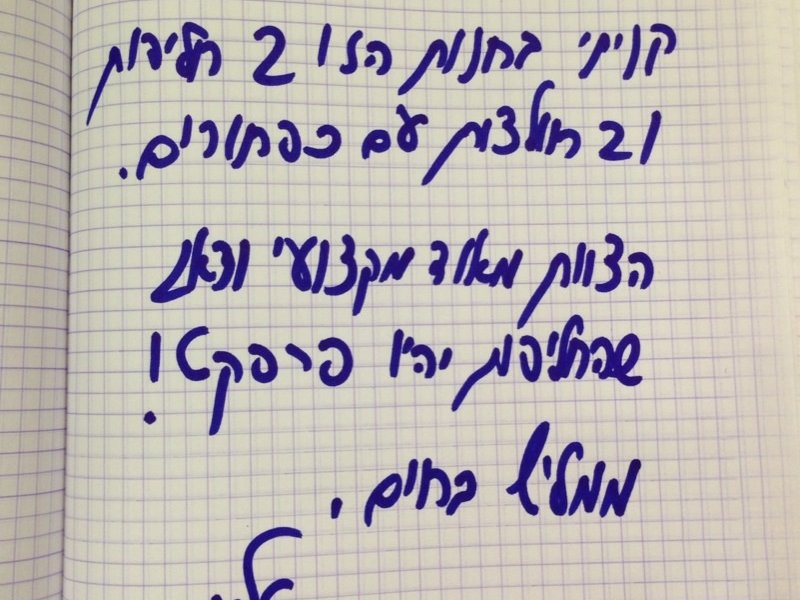 קניתי בחנות הזו 2 חליפות
ו2 חולצות עם כפתורים.
הצוות מאוד מקצועי ודאג
שהחליפות יהיו פרפקט!
ממליץ בחום.